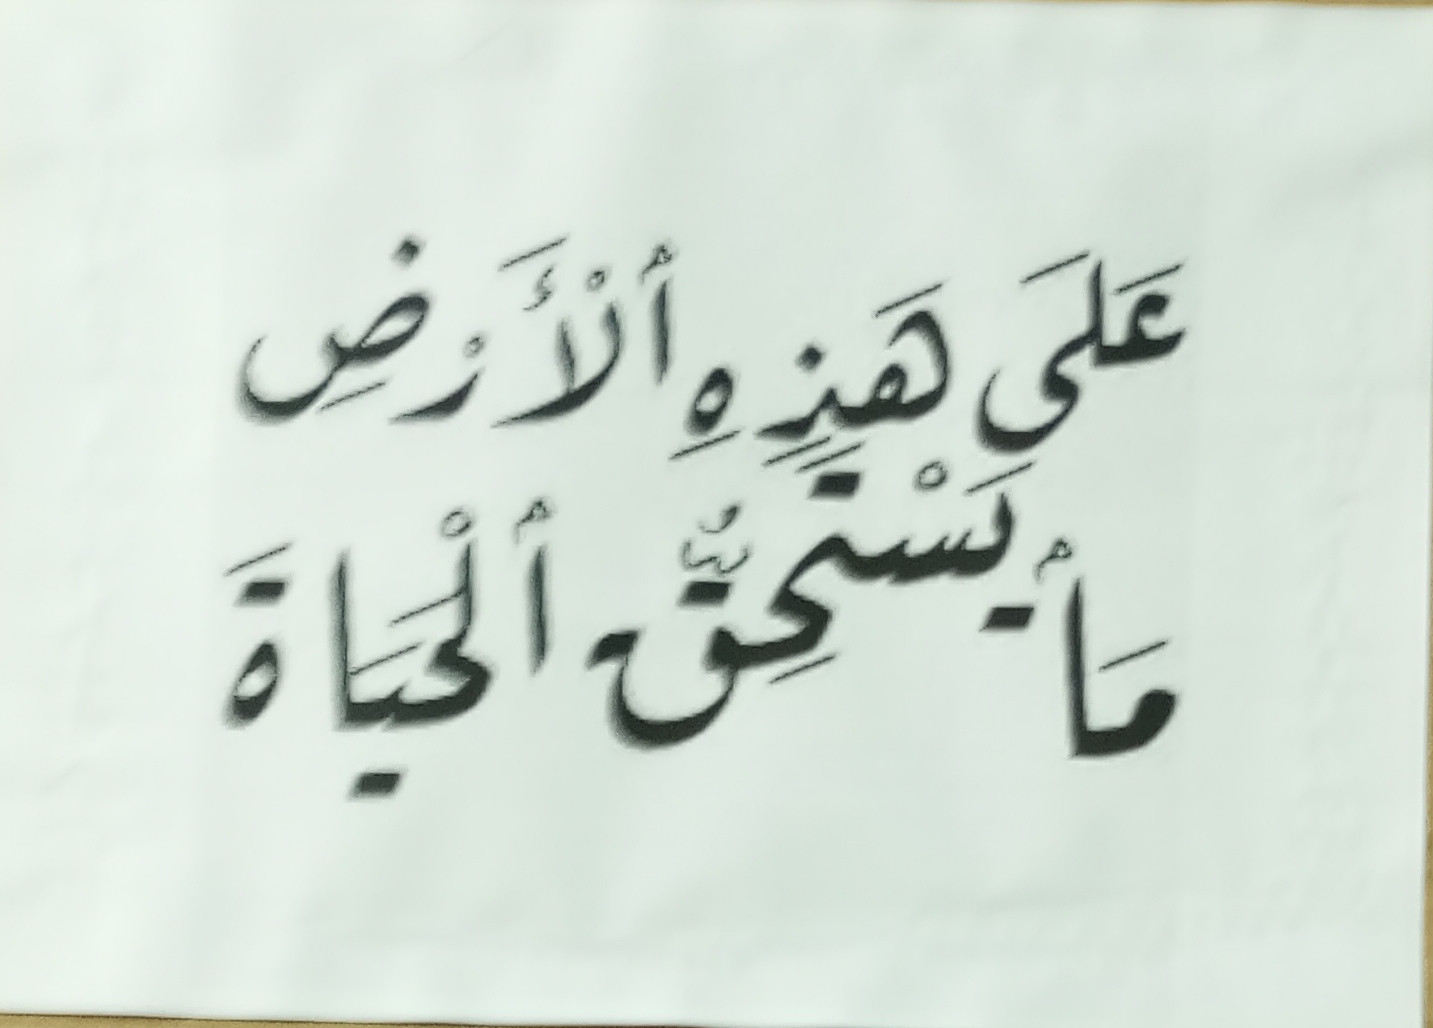 عَلَى هَذِهِ ٱلْأَرْضِ
مَا يَسْتَحِقُّ ٱلْحَيَاةَ